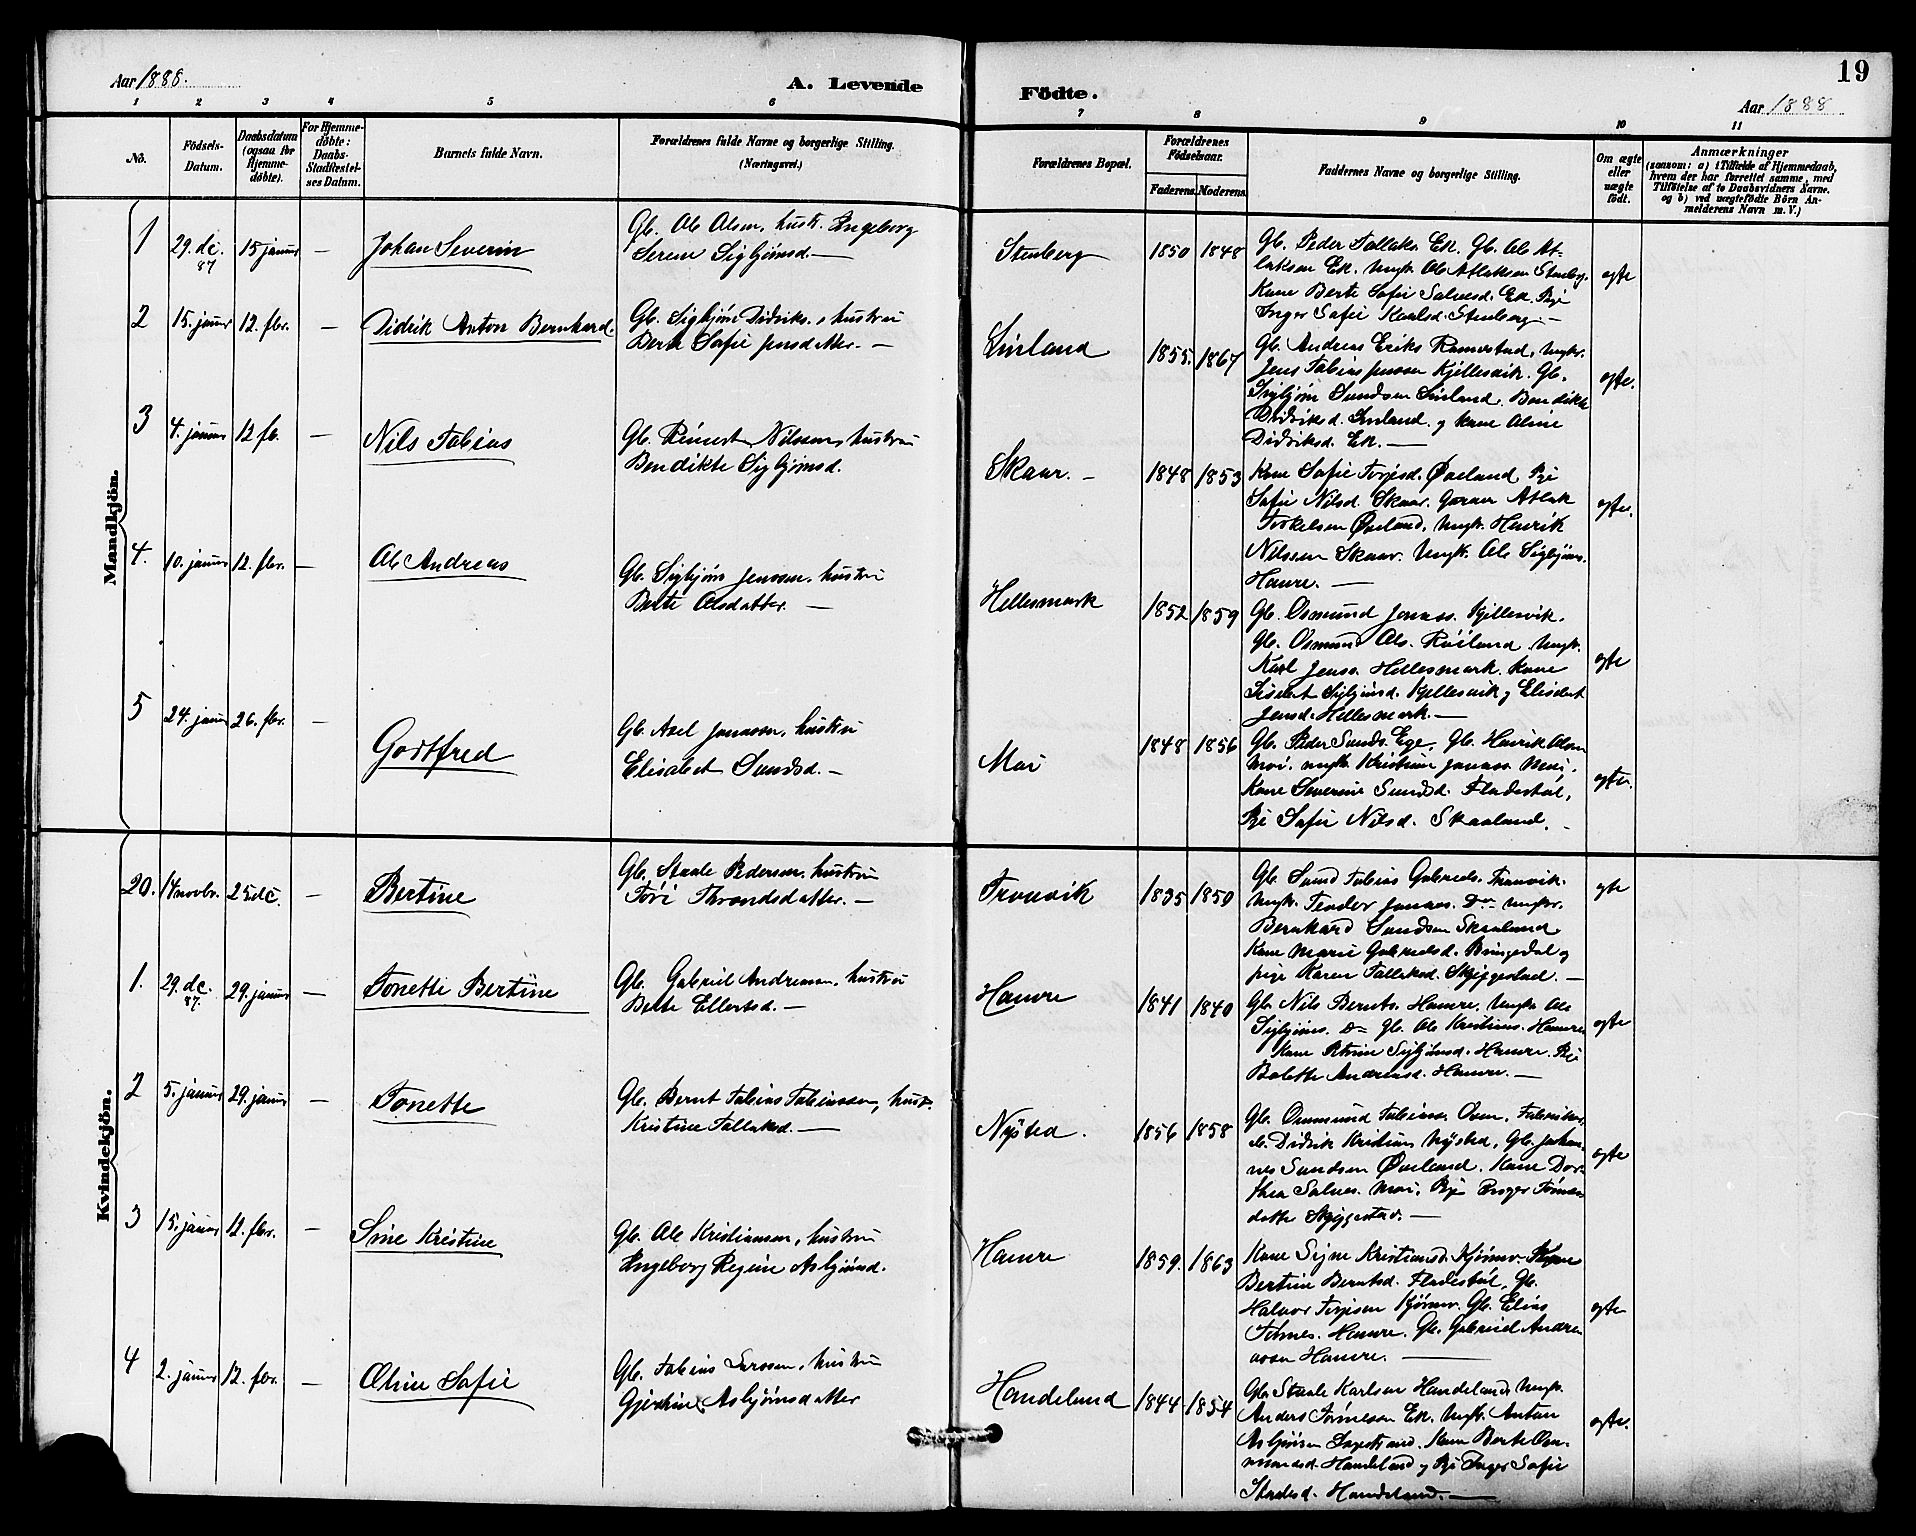 Aar 1888.
A. Levende
Födte.
19
Aar 1888
1 2 3 4 5 6 7 8 9 10 11
No.
Födsels-Datum.
Daabsdatum (ogsaa for Hjemme-döbte).
For Hjemme-döbte: Daabs-Stadfæstel-ses Datum.
Barnets fulde Navn.
Forældrenes fulde Navne og borgerlige Stilling. (Næringsvei.)
Forældrenes Bopæl.
Forældrenes Födselsaar.
Faderens. Moderens.
Faddernes Navne og borgerlige Stilling.
Om ægte eller uægte födt.
Anmærkninger
(saasom: a) i Tilfælde af Hjemmedaab,
hvem der har forrettet samme, med
Tilföielse af to Daabsvidners Navne,
og b) ved uægtefödte Börn An-
melderens Navn m. V.)
Mandkjön.
1 29. dc. 87 15 januar — Johan Severin
Gb. Ole Olsen, hustr. Ingeborg
Serene Sigbjørnsd. —
Stenberg 1850 1848
Gb. Peder Tallaks. Ek. Gb. Ole At-
laksen Ek. Ungk. Ole Atlaksen Stenberg.
Kone Berte Sofie Salvesd. Ek. Pige
Inger Sofie Karlsd. Stenberg. —
egte
2 15. januar 12. fbr. — Didrik Anton Bernhard.
Gb. Sigbjørn Didriks., hustru
Berte Sofie Jensdatter. —
Linland 1855. 1867
Gb. Andreas Eriks. Ramestad, Ungk.
Jens Tobias Jensen Kjellesvik. Gb.
Sigbjørn Sundsen Linland. Bendikte
Didriksd. Linland og kone Aline
Didriksd. Ek. —
egte.
3 4. januar 12 fb. — Nils Tobias
Gb. Reinert Nilssen, hustru
Bendikte Sigbjørnsd.
Skaar. — 1848 1853
Kone Sofie Torjesd. Øveland, Pige
Sofie Nilsd. Skaar. Garver Atlak
Torkelsen Øveland, Ungk. Henrik
Nilssen Skaar. Ungk. Ole Sigbjørns.
Hamre. —
egte.
4. 10. januar 12. fbr. — Ole Andreas
Gb. Sigbjørn Jenssen, hustru
Berte Olsdatter. —
Hellesmark 1852 1859
Gb. Osmund Jonass. Kjellesvik.
Gb. Osmund Ols. Røiland. Ungk.
Karl Jenss. Hellesmark. Kone
Lisabet Sigbjørnsd. Kjellesvik og Elisabet
Jensd. Hellesmark. —
egte
5 24. januar 26. fbr. — Godtfred
Gb. Axel Jonassen, hustru
Elisabet Sundsd. —
Moi 1848 1856
Gb. Peder Sunds. Ege. Gb. Henrik Olsen
Moi. Ungk. Kristian Jonass. Moi.
Kone Severine Sundsd. Fladestøl,
Pige Sofie Nilsd. Skaaland. —
egte.
Kvindekjön.
20. 14 novbr. 25 dc. — Bertine
Gb. Staale Pedersen, hustru
Tori Throndsdatter. —
Tronvik 1835 1850
Gb. Sund Tobias Gabriels. Tronvik.
Ungk. Teodor Jonass. Do Ungk.
Bernhard Sundsen Skaaland.
Kone Marie Gabrielsd. Bringedal og
pige Karen Tallaksd. Skjeggestad. —
egte
1. 29. dc. 87. 29. januar — Tonette Bertine
Gb. Gabriel Andreassen, hustru
Berte Ellertsd. —
Hamre 1841 1840
Gb. Nils Bernts. Hamre. Ungk. Ole
Sigbjørns. Do Gb. Ole Kristians. Hamre.
Kone Petrine Sigbjørnsd. Hamre. Pige
Bolette Andreasd. Hamre. —
egte
2 5. januar 29. januar — Tonette
Gb. Bernt Tobias Tobiassen, hustr.
Kristine Tallaksd. —
Nysted. 1856 1858
Gb. Ommund Tobiass. Oven.
Didrik Kristians. Nysted, Gb. Johan-
nes Sundsen Øveland. Kone Doro-
thea Salves. Moi. Pige Inger Tønnes-
datter Skjeggestad. —
egte
3 15. januar 12. fbr. — Sine Kristine
Gb. Ole Kristiansen, hustru
Ingeborg Regine Asbjørnsd.
Hamre 1859. 1863
Kone Signe Kristiansd. Kjørmo.
Bertine Berntsd. Fladestøl, Gb.
Halvor Torjesen Kjørmo. Gb. Elias
Tønnes. Hamre. Gb. Gabriel Andre-
assen Hamre. —
egte
4 2. januar 12. fbr. — Oline Sofie
Gb. Tobias Larssen, hustru
Gjertine Asbjørnsdatter
Handeland 1844 1854
Gb. Staale Karlsen Handeland Ungk.
Anders Tønnesen Ek. Ungk. Anton
Asbjørnsen Kone Berte Om-
mundsd. Handeland og Pige Inger Sofie
Staalesd. Handeland. —
egte.